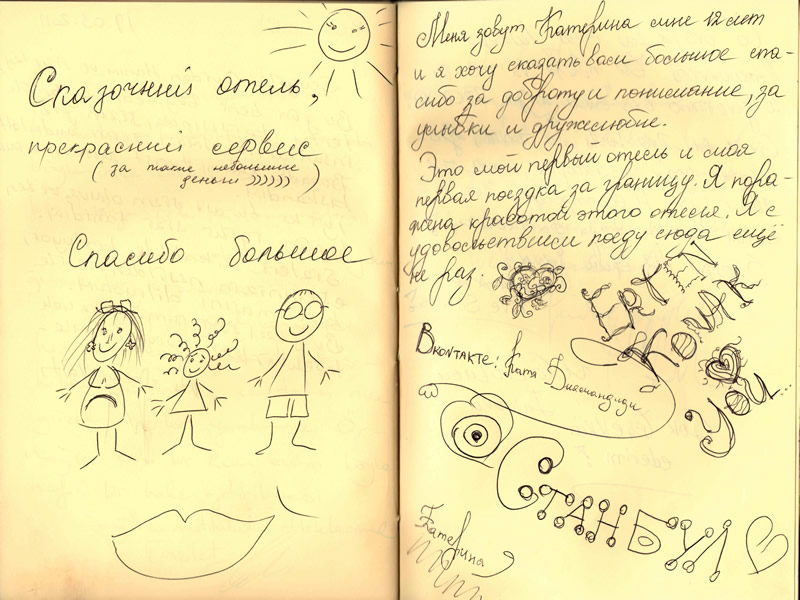 Сказочний отель,
прекрасний сервис
(за такие небольшие
деньги ))))))  )
Спасибо большое
Меня зовут Катерина мне 12 лет
и я хочу сказать вам большое спа-
сибо за доброту и понимание, за
улыбки и дружелюбие.
Это мой первый отель и моя
первая поездка за границу. Я пора-
жена красотой этого отеля. Я с
удовольствием поеду сюда ещё
не раз.
ERTEN
KONAK
YOU...
Вконтакте: Катя Диамандиди
СТАНБУЛ
Катерина